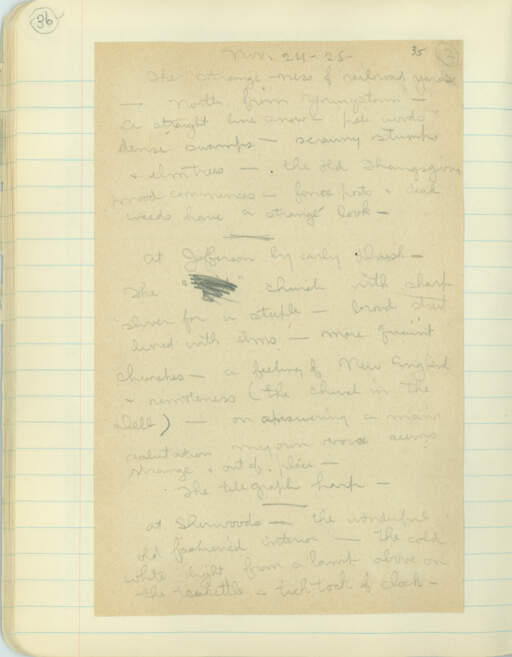 36
Nov. 24-25
35
The strange-ness of railroad yards
— North from Youngstown —
a straight line across pale woods
dense swamps — scrawny stumps
& elm trees — the old Thanksgiving
mood commences — fence posts & dead
weeds have a strange look —
At Jefferson by early
The " " church with sharp
sliver for a steeple — broad street
lined with elms — more quaint
churches — a feeling of New England
& remoteness (the church in the
Dell) — on answering a man's
salutation my own voice seems
strange & out of place —
The telegraph harp —
At Sherwoods — the wonderful
old fashioned interior — the cold
white light from a lamp above on
the teakettle — tick-tock of clock —